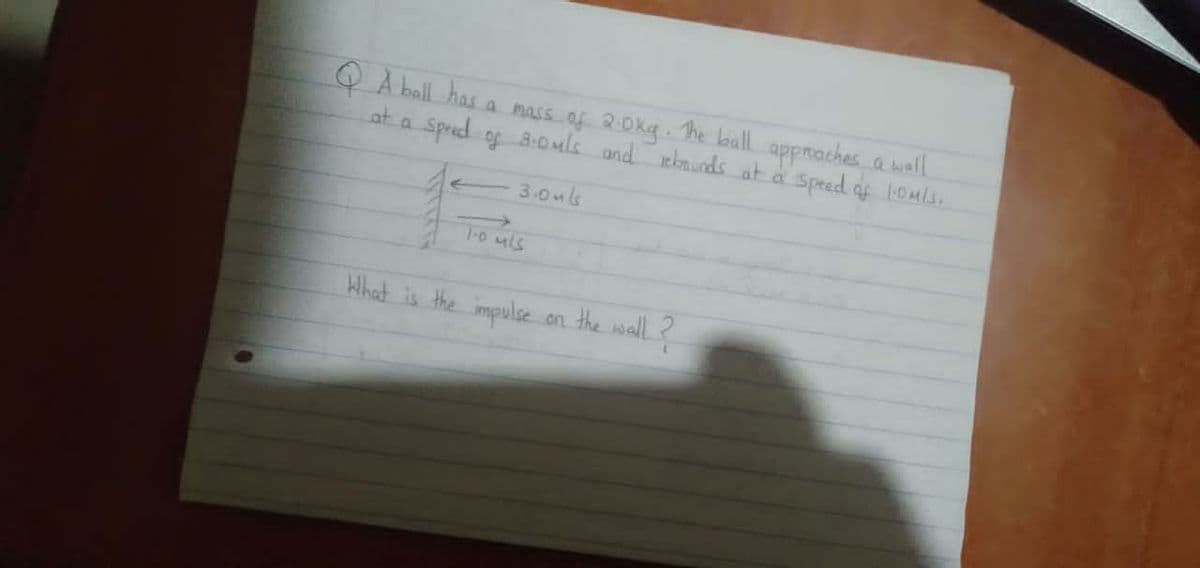 Q A ball has a mass of 2.0kg. The ball approaches a wall
at a speed of 3.0m/s and rebounds at a speed of 1.0m/s.
3.0m/s
1.0 m/s
What is the impulse on the wall?